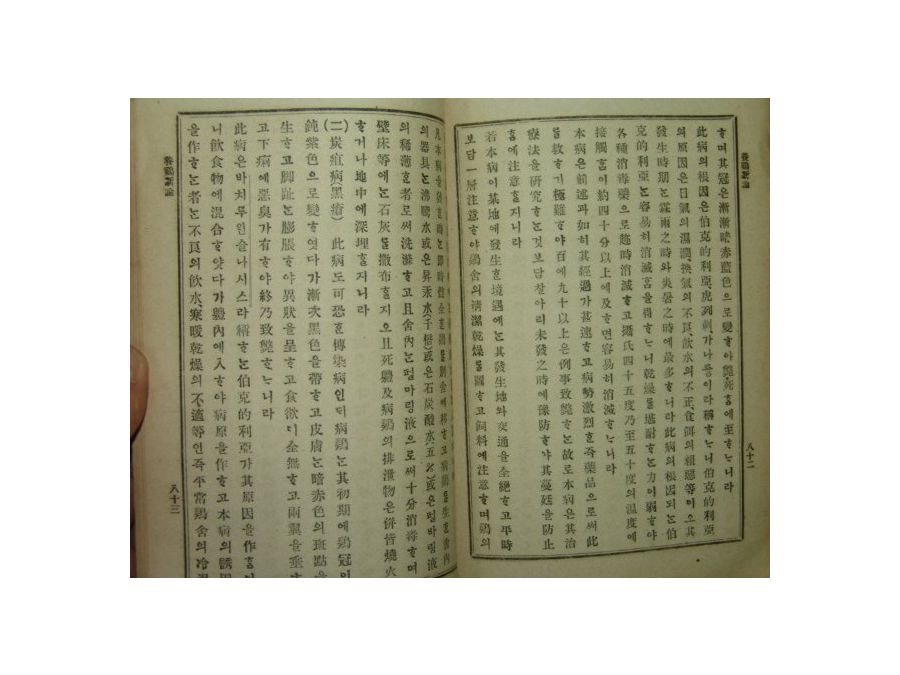 養鷄新論
八十二
ᄒᆞ며其冠은漸漸暗赤藍色으로變ᄒᆞ야斃死ᄒᆞᆷ에至ᄒᆞᄂᆞ니라
此病의根因은伯克的利亞
의原因은日氣의濕潤、換氣의不良、飮水의不正、食餌의
發生時期ᄂᆞᆫ霖雨之時와炎暑之時에最多ᄒᆞ니라此病의根因되ᄂᆞᆫ伯
克的利亞ᄂᆞᆫ容易히消滅ᄒᆞᆷ을得ᄒᆞᄂᆞ니乾燥ᄅᆞᆯ堪耐ᄒᆞᄂᆞᆫ力이弱ᄒᆞ야
各種消毒藥으로 時消滅ᄒᆞ고攝氏四十五度乃至五十度의溫度에
接觸ᄒᆞᆷ이約四十分以上에及ᄒᆞ면容易히消滅ᄒᆞᄂᆞ니라
本病은前述과如히其經過가甚速ᄒᆞ고病勢激烈ᄒᆞᆫ즉藥品으로써此
ᄅᆞᆯ救ᄒᆞ기極難ᄒᆞ야百에九十以上은例事致斃ᄒᆞᄂᆞᆫ故로本病은其治
療法을硏究ᄒᆞᄂᆞᆫ것보담찰아리未發之時에豫防ᄒᆞ야其蔓延을防止
ᄒᆞᆷ에注意ᄒᆞᆯ지니라
若本病이某地에發生ᄒᆞᆫ境遇에ᄂᆞᆫ其發生地와交通을全絕ᄒᆞ고平時
보담一層注意ᄒᆞ야鷄舍의淸潔乾燥ᄅᆞᆯ圖ᄒᆞ고飼料에注意ᄒᆞ며鷄의
凡本病
의器具ᄂᆞᆫ沸騰水或은昇汞水(千倍)或은石炭酸水(五%)或은
의稀薄ᄒᆞᆫ者로써洗滌ᄒᆞ고且舍內ᄂᆞᆫ 液으로써十分消毒ᄒᆞ며
壁床等에ᄂᆞᆫ石灰ᄅᆞᆯ撒布ᄒᆞᆯ지오且死軆及病鷄의排泄物은倂皆燒火
ᄒᆞ거나地中에深埋ᄒᆞᆯ지니라
(二)炭疽病(黑瘡) 此病도可恐ᄒᆞᆯ傳染病인ᄃᆡ病鷄ᄂᆞᆫ其初期에鷄冠이
鈍紫色으로變ᄒᆞ엿다가漸次黑色을帶ᄒᆞ고皮膚ᄂᆞᆫ暗赤色의斑點을
生ᄒᆞ고脚趾ᄂᆞᆫ膨脹ᄒᆞ야異狀을呈ᄒᆞ고食欲이全無ᄒᆞ고兩翼을垂ᄒᆞ
고下痢에惡臭가有ᄒᆞ야終乃致斃ᄒᆞᄂᆞ니라
此病은바치루인슬나시스라稱ᄒᆞᄂᆞᆫ伯克的利亞가其原因을作ᄒᆞᄂᆞ
니飮食物에混合ᄒᆞ얏다가軆內에入ᄒᆞ야病原을作ᄒᆞ고本病의誘因
을作ᄒᆞᄂᆞᆫ者ᄂᆞᆫ不良의飮水、寒暖乾燥의不適等인즉平常鷄舍의冷濕
養鷄新論
八十三